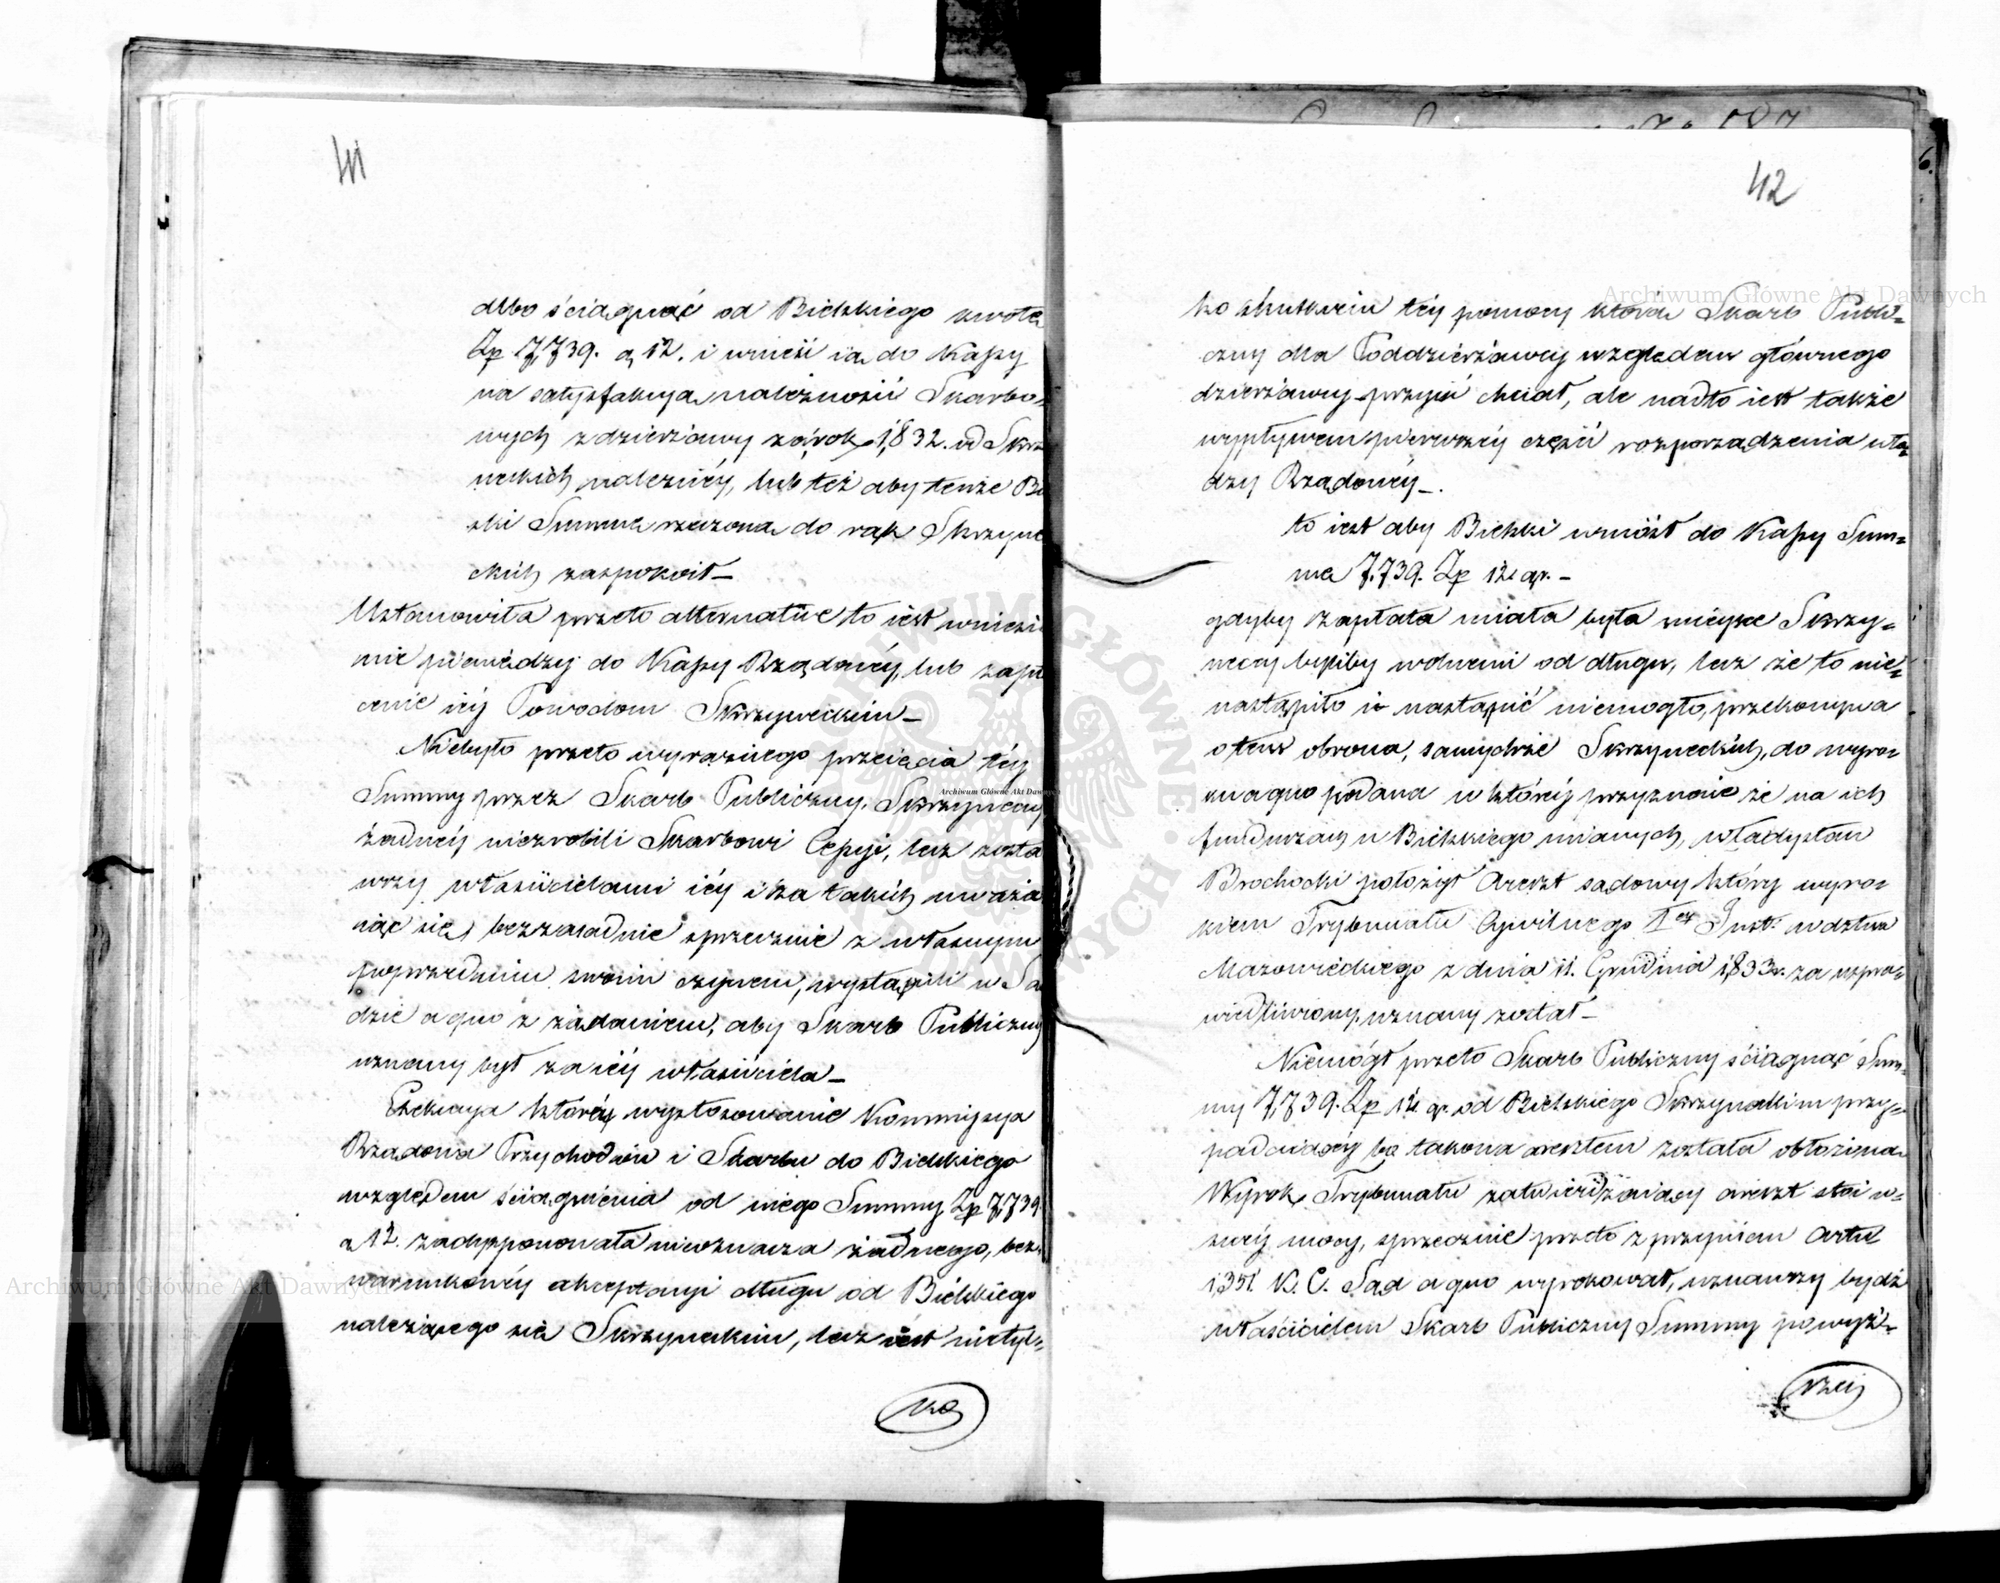 41
albo ściągnąć od Bielskiego kwotę
Zp 7,739. g 12. i wnieść ią do Kassy
na satysfakcyą należności Skarbo-
wych z dzierżawy za rok 1832. od Skrz
neckich należnéy, lub też aby tenże Bi
ski Summę rzeczoną do rąk Skrzyne
ckich zaspokoił —
Ustanowiła przeto alternatię to iest wniesie
nie pieniędzy do Kassy Rządowéy, lub zapł
cenie iéy Powodom Skrzyneckim —
Niebyło przeto wyraźnego przeięcia téy
Summy przez Skarb Publiczny, Skrzyneccy
żadnéy niezrobili Skarbowi Cessyi, lecz zosta
wszy właścicielami iéy i za takich uważa
iąc się, bezzasadnie sprzecznie z własnym
poprzednim swoim czynem, wystąpili w Są
dzie a quo z żądaniem, aby Skarb Publiczny
uznany był za iéy właściciela —
Exekucya któréy wystosowanie Kommissya
Rządowa Przychodów i Skarbu do Bielskiego
względem ściągnienia od niego Summy Zp 7,739
g 12. zadysponowała nieoznacza żadnego, bez-
warunkowéy akceptacyi długu od Bielskiego
należącego się Skrzyneckim, lecz iest nietyl-
ko
42
ko skutkiem téy pomocy którą Skarb Publi-
czny dla Poddzierżawcy względem głównego
dzierżawcy przyiść chciał, ale nadto iest także
wypływem pierwszéy części rozporządzenia wła-
dzy Rządowéy —.
to iest aby Bielski wniósł do Kassy Sum-
mę 7,739. Zp 12 gr. —
gdyby zapłata miała była mieysce Skrzy-
neccy byliby wolnemi od długu, lecz że to nie-
nastąpiło i nastąpić niemogło, przekonywa
o tem obrona, samychże Skrzyneckich, do wyro-
ku a quo podana w któréy przyznaie że na ich
funduszach u Bielskiego mianych, Władysław
Brochocki położył Areszt sądowy który wyro-
kiem Trybunału Cywilnego Iey Inst: wdztwa
Mazowieckiego z dnia 11. Grudnia 1833 r. za uspra-
wiedliwiony uznany został —
Niemógł przeto Skarb Publiczny ściągnąć Sum-
my 7,739. Zp 12 gr. od Bielskiego Skrzyneckim przy-
padaiącéy bo takowa aresztem została obłożoną
Wyrok Trybunału zatwierdzaiący areszt stoi w
swéy mocy, sprzecznie przeto z przepisem Artu
1351. K. C. Sąd a quo wyrokował, uznawszy bydź
właścicielem Skarb Publiczny Summy powyż-
széy
Archiwum Główne Akt Dawnych
Archiwum Główne Akt Dawnych
Archiwum Główne Akt Dawnych